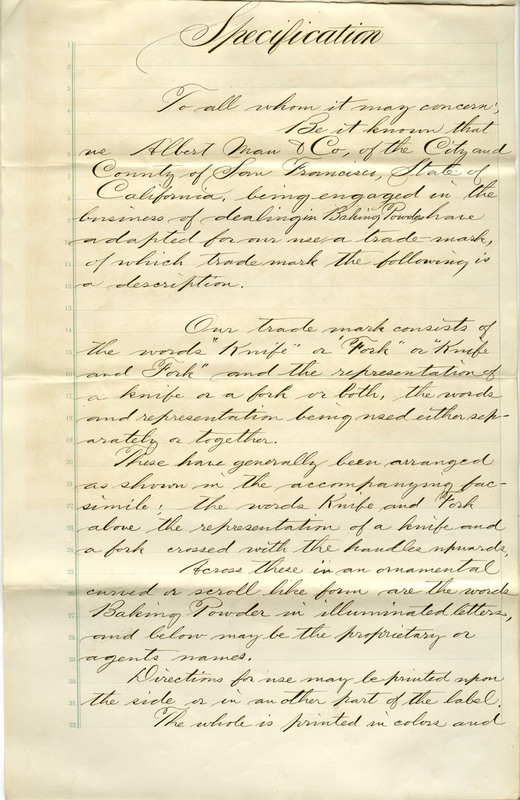 Specification
To all whom it may concern;
Be it known that
we Albert Mau & Co, of the City and
County of San Francisco, State of
California, being engaged in the
business of dealing in Baking Powder have
adapted for our use a trade-mark,
of which trade mark the following is
a description.
Our trade mark consists of
the words "Knife" or "Fork" or "Knife
and Fork" and the representation of
a knife or a fork or both, the words
and representation being used either sep-
arately or together.
These have generally been arranged
as shown in the accompanying fac-
simile; the words Knife and Fork
above the representation of a knife and
a fork crossed with the handles upwards,
Across these in an ornamental
curved or scroll like form are the words
Baking Powder in illuminated letters,
and below may be the proprietary or
agents names.
Directions for use may be printed upon
the side or in another part of the label.
The whole is printed in colors and